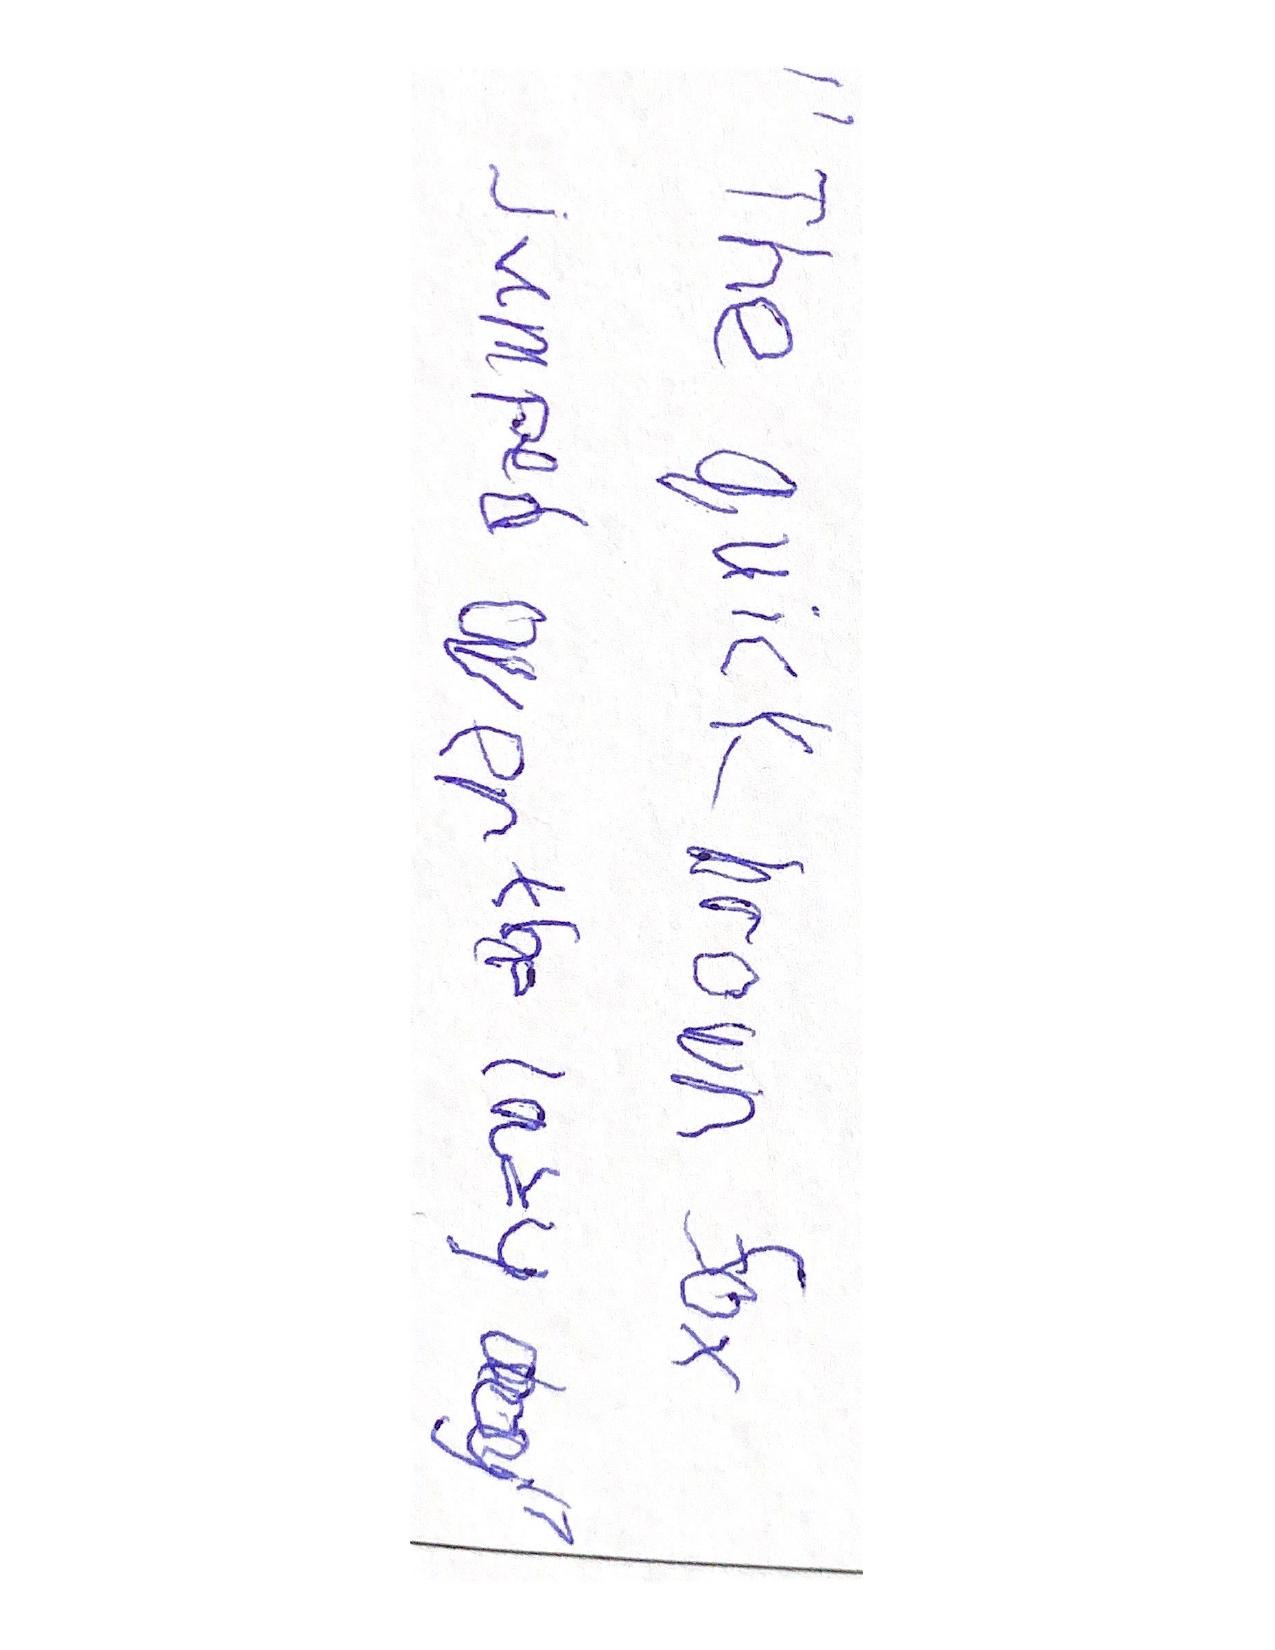 "The quick brown fox
jumped over the lazy dog"